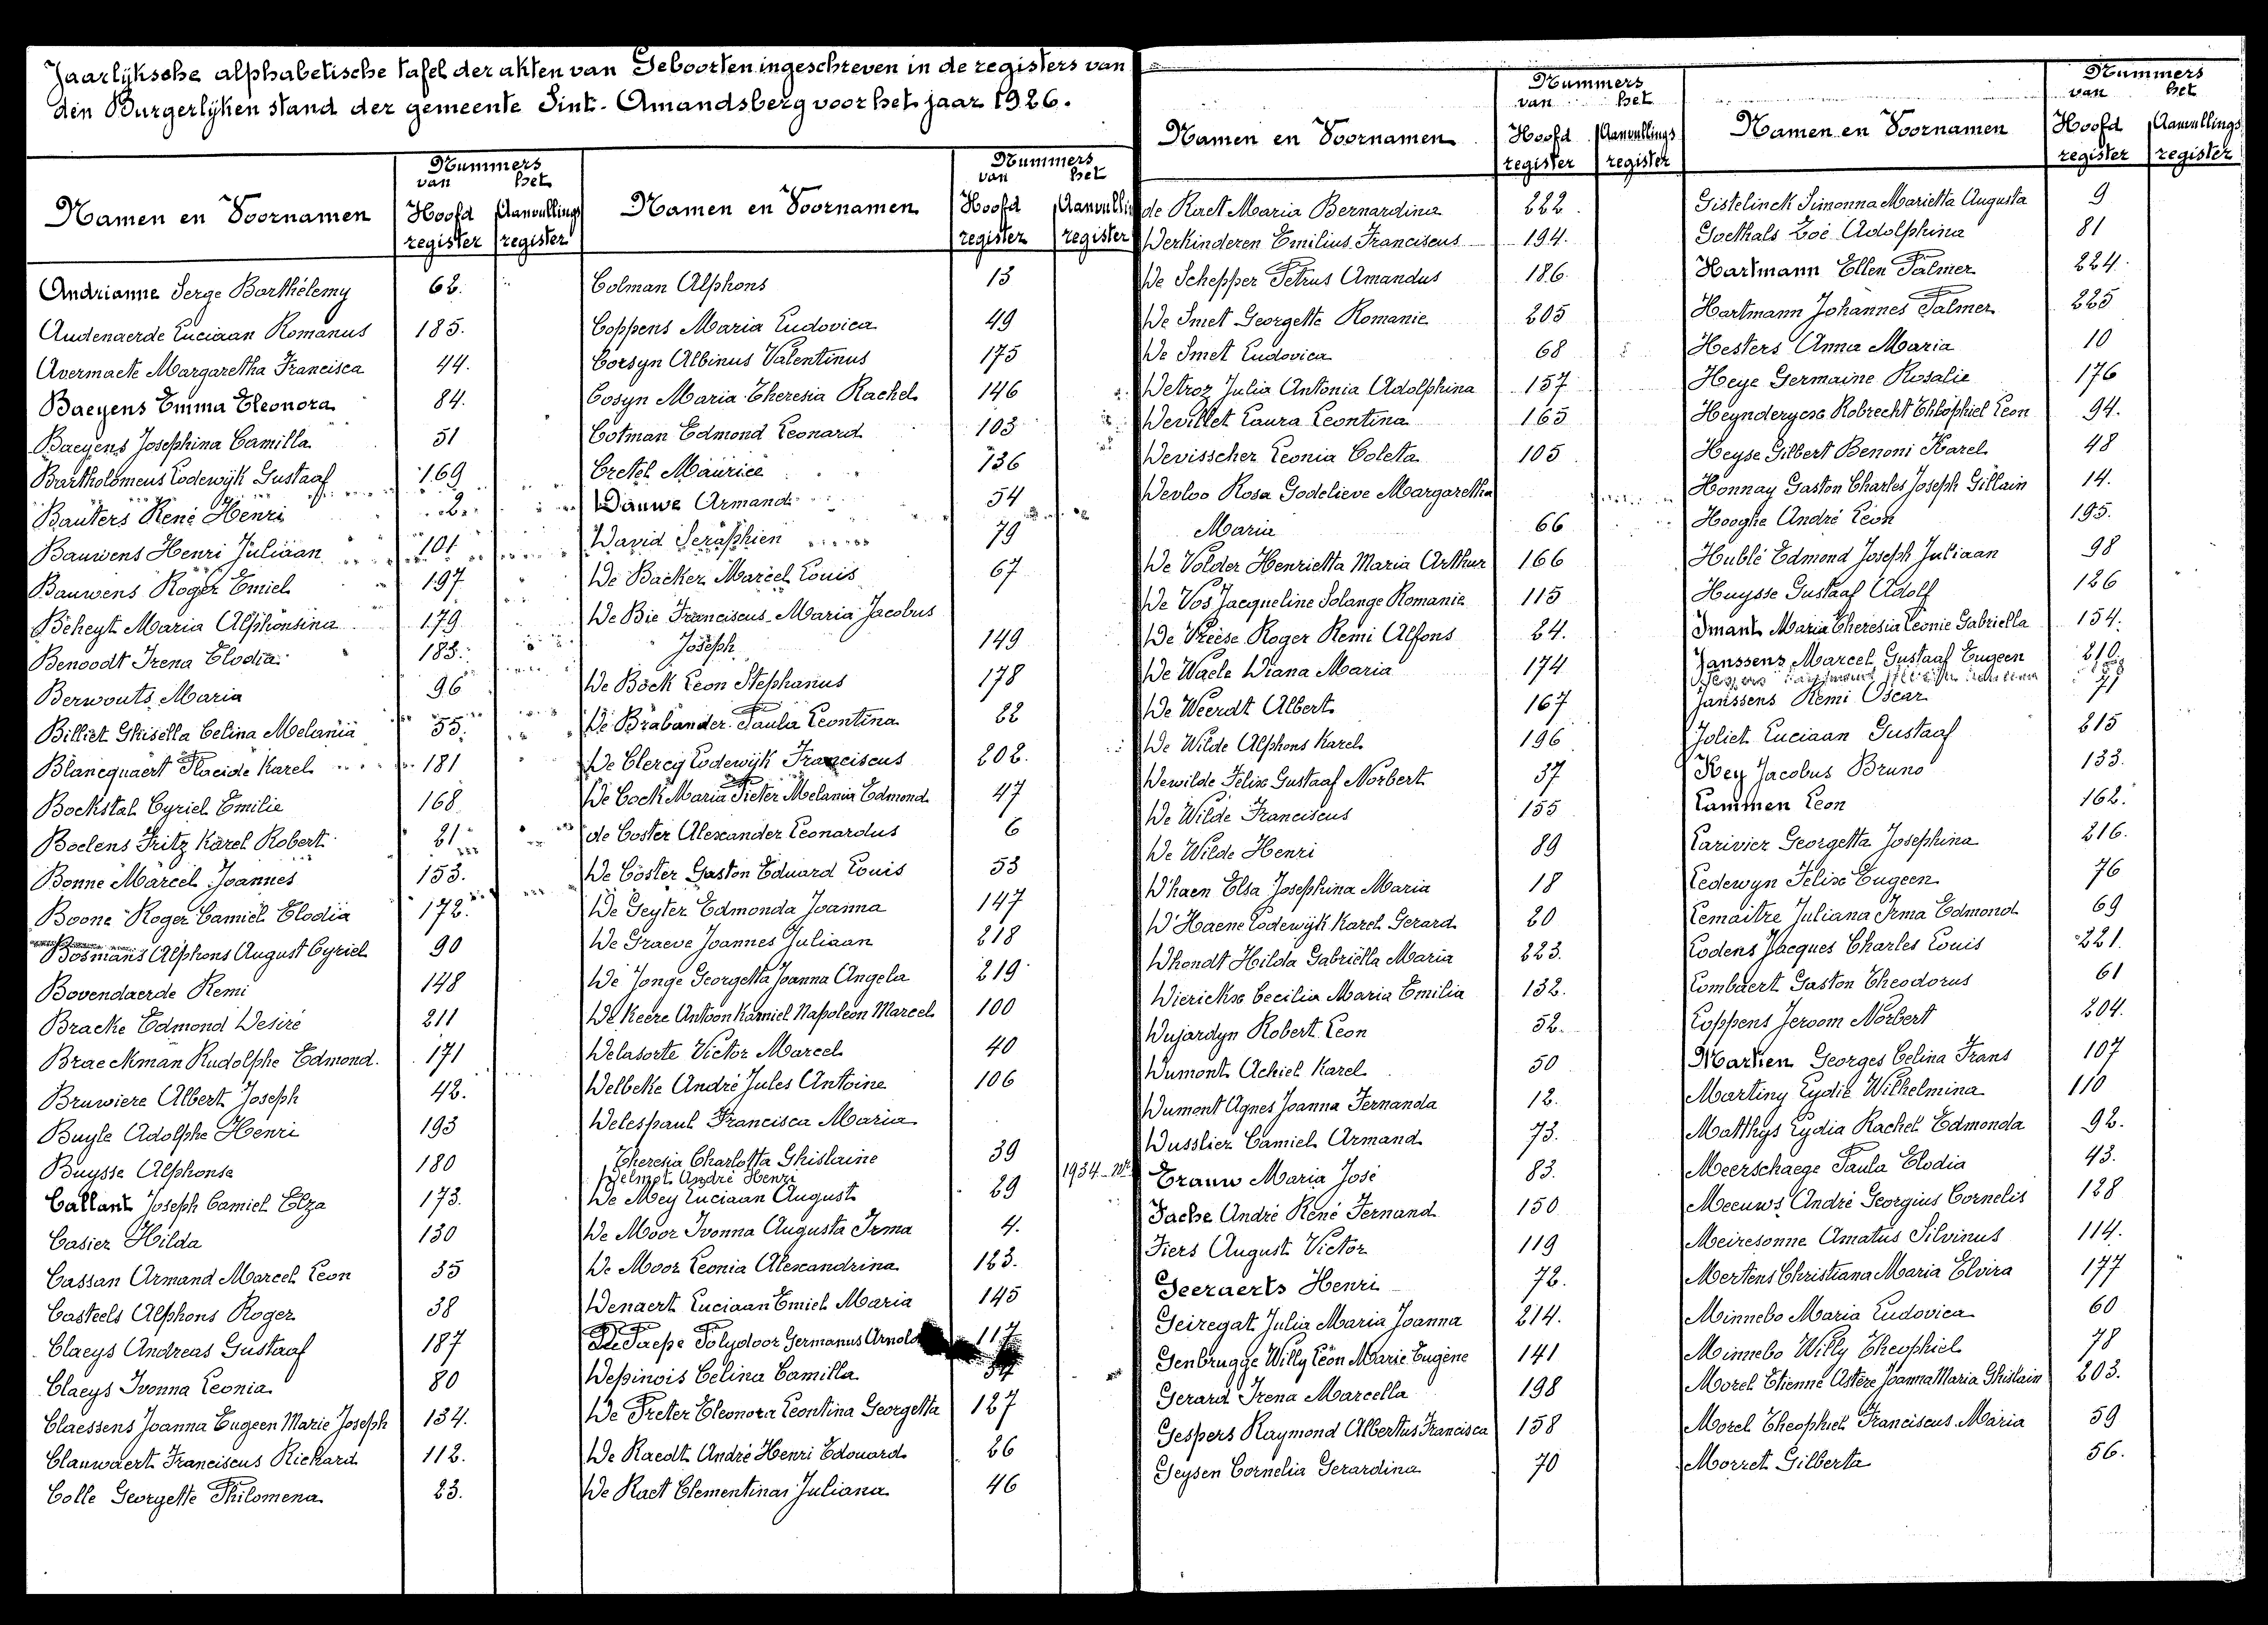 Jaarlijksche alphabetische tafel der akten van Geboorten ingeschreven in de registers van
den Burgerlijken stand der gemeente Sint-Amandsberg voor het jaar 1926.
Namen en Voornamen
Nummers
van het
Hoofd register
Aanvullings register
Andrianne Serge Barthélemy 62.
Audenaerde Luciaan Romanus 185.
Avermaete Margaretha Francisca 44.
Baeyens Emma Eleonora 84.
Baeyens Josephina Camilla 51
Bartholomeus Lodewijk Gustaaf 169
Bauters René Henri 2
Bauwens Henri Juliaan 101
Bauwens Roger Emiel 197
Beheyt Maria Alphonsina 179
Benoodt Irena Elodia 183.
Berwouts Maria 96
Billiet Ghisella Celina Melania 55.
Blancquaert Placide Karel 181
Bockstal Cyriel Emilie 168
Boelens Fritz Karel Robert 21
Bonne Marcel Joannes 153.
Boone Roger Camiel Elodia 172.
Bosmans Alphons August Cyriel 90
Bovendaerde Remi 148
Bracke Edmond Desiré 211
Braeckman Rudolphe Edmond. 171
Bruwiere Albert Joseph 42.
Buyle Adolphe Henri 193
Buysse Alphonse 180
Callant Joseph Camiel Elza 173.
Casier Hilda 130
Cassan Armand Marcel Leon 35
Casteels Alphons Roger 38
Claeys Andreas Gustaaf 187
Claeys Ivonna Leonia 80
Claessens Joanna Eugeen Marie Joseph 134.
Clauwaert Franciscus Richard 112.
Colle Georgette Philomena 23.
Namen en Voornamen
Nummers
van het
Hoofd register
Aanvulli register
Colman Alphons 13
Coppens Maria Ludovica 49
Corsyn Albinus Valentinus 175
Cosyn Maria Theresia Rachel 146
Cotman Edmond Leonard 103
Cretel Maurice 136
Dauwe Armand 54
David Seraphien 79
De Backer Marcel Louis 67
De Bie Franciscus Maria Jacobus
Joseph 149
De Bock Leon Stephanus 178
De Brabander Paula Leontina 22
De Clercq Lodewijk Franciscus 202.
De Cock Maria Pieter Melania Edmond 47
de Coster Alexander Leonardus 6
De Coster Gaston Eduard Louis 53
De Geyter Edmonda Joanna 147
De Graeve Joannes Juliaan 218
De Jonge Georgetta Joanna Angela 219
De Keere Antoon Kamiel Napoleon Marcel 100
Delasorte Victor Marcel 40
Delbeke André Jules Antoine 106
Delespaul Francisca Maria
Theresia Charlotta Ghislaine 39
Delmot André Henri 1934
De Mey Luciaan August 29
De Moor Ivonna Augusta Irma 4.
De Moor Leonia Alexandrina 123.
Denaert Luciaan Emiel Maria 145
De Paepe Polydoor Germanus Arnold 117
Depinois Celina Camilla
De Preter Eleonora Leontina Georgetta 127
De Raedt André Henri Edouard 26
De Raet Clementina Juliana 46
Namen en Voornamen
Nummers
van het
Hoofd register
Aanvullings register
de Raet Maria Bernardina 222
Derkinderen Emilius Franciscus 194.
De Schepper Petrus Amandus 186
De Smet Georgette Romanie 205
De Smet Ludovica 68
Detroz Julia Antonia Adolphina 157
Devillet Laura Leontina 165
Devisscher Leonia Coleta 105
Devloo Rosa Godelieve Margaretha
Maria 66
De Volder Henrietta Maria Arthur 166
De Vos Jacqueline Solange Romanie 115
De Vreese Roger Remi Alfons 24.
De Waele Diana Maria 174
De Weerdt Albert 167
De Wilde Alphons Karel 196
Dewilde Felix Gustaaf Norbert 37
De Wilde Franciscus 155
De Wilde Henri 89
D'haen Elsa Josephina Maria 18
D'Haene Lodewijk Karel Gerard 20
Dhondt Hilda Gabriella Maria 223.
Dierickx Cecilia Maria Emilia 132.
Dujardyn Robert Leon 52.
Dumont Achiel Karel 50
Dumont Agnes Joanna Fernanda 12.
Dusslier Camiel Armand 73.
Erauw Maria José 83.
Fache André René Fernand 150
Fiers August Victor 119
Geeraerts Henri 72.
Geiregat Julia Maria Joanna 214.
Genbrugge Willy Léon Marie Eugène 141
Gerard Irena Marcella 198
Gespers Raymond Albertus Francisca 158
Geysen Cornelia Gerardina 70
Namen en Voornamen
Nummers
van het
Hoofd register
Aanvullings register
Gistelinck Simonna Marietta Augusta 9
Goethals Zoé Adolphina 81
Hartmann Ellen Palmer 224.
Hartmann Johannes Palmer 225
Hesters Anna Maria 10
Heye Germaine Rosalie 176
Heynderycx Robrecht Théophiel Leon 94.
Heyse Gilbert Benoni Karel 48
Honnay Gaston Charles Joseph Gillain 14.
Hooghe André Léon 195.
Hublé Edmond Joseph Juliaan 98
Huysse Gustaaf Adolf 126
Imant Maria Theresia Leonie Gabriella 154.
Janssens Marcel Gustaaf Eugeen 210.
Janssens Remi Oscar 71
Joliet Luciaan Gustaaf 215
Key Jacobus Bruno 133.
Lammen Leon 162.
Larivier Georgetta Josephina 216.
Ledewyn Felix Eugeen 76
Lemaitre Juliana Irma Edmond 69
Lodens Jacques Charles Louis 221.
Lombaert Gaston Theodorus 61
Loppens Jeroom Norbert 204.
Martien Georges Celina Frans 107
Martiny Lydie Wilhelmina 110
Matthys Lydia Rachel Edmonda 92.
Meerschaege Paula Elodia 43.
Meeuws André Georgius Cornelis 128
Meiresonne Amatus Silvinus 114.
Mertens Christiana Maria Elvira 177
Minnebo Maria Ludovica 60
Minnebo Willy Theophiel 78
Morel Etienne Astère Joanna Maria Ghislain 203.
Morel Theophiel Franciscus Maria 59
Morret Gilberta 56.